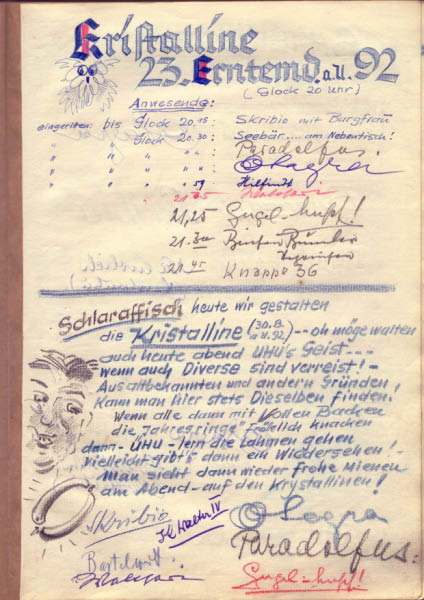 Kristalline
23. Erntemd. a.U. 92
(Glock 20 Uhr)
Anwesende:
eingeritten: bis Glock 20.15: Skribio mit Burgfrau
Glock 20.30: Seebär.... am Nebentisch!
" " " " Paradolfus.
" " " " Olagra
" " " " 59
21.05
21,25 Gugel-hupf!
21.30
21.45 Knappe 36
Schlaraffisch heute wir gestalten
die Kristalline (30.8. a.U.92) -- oh möge walten
auch heute abend UHU's Geist ---
wenn auch Diverse sind verreist! -
Aus altbekannten und andern Gründen,
Kann man hier stets Dieselben finden.
Wenn alle dann mit vollen Backen
die "Jahresringe" fröhlich knacken
dann - ÜHU - lern die Lahmen gehen
vielleicht gibt's dann ein Wiedersehen! -
Man sieht dann wieder frohe Mienen
am Abend - auf den Krystallinen!
Skribio
Olagra
Paradolfus:
Gugel-hupf!